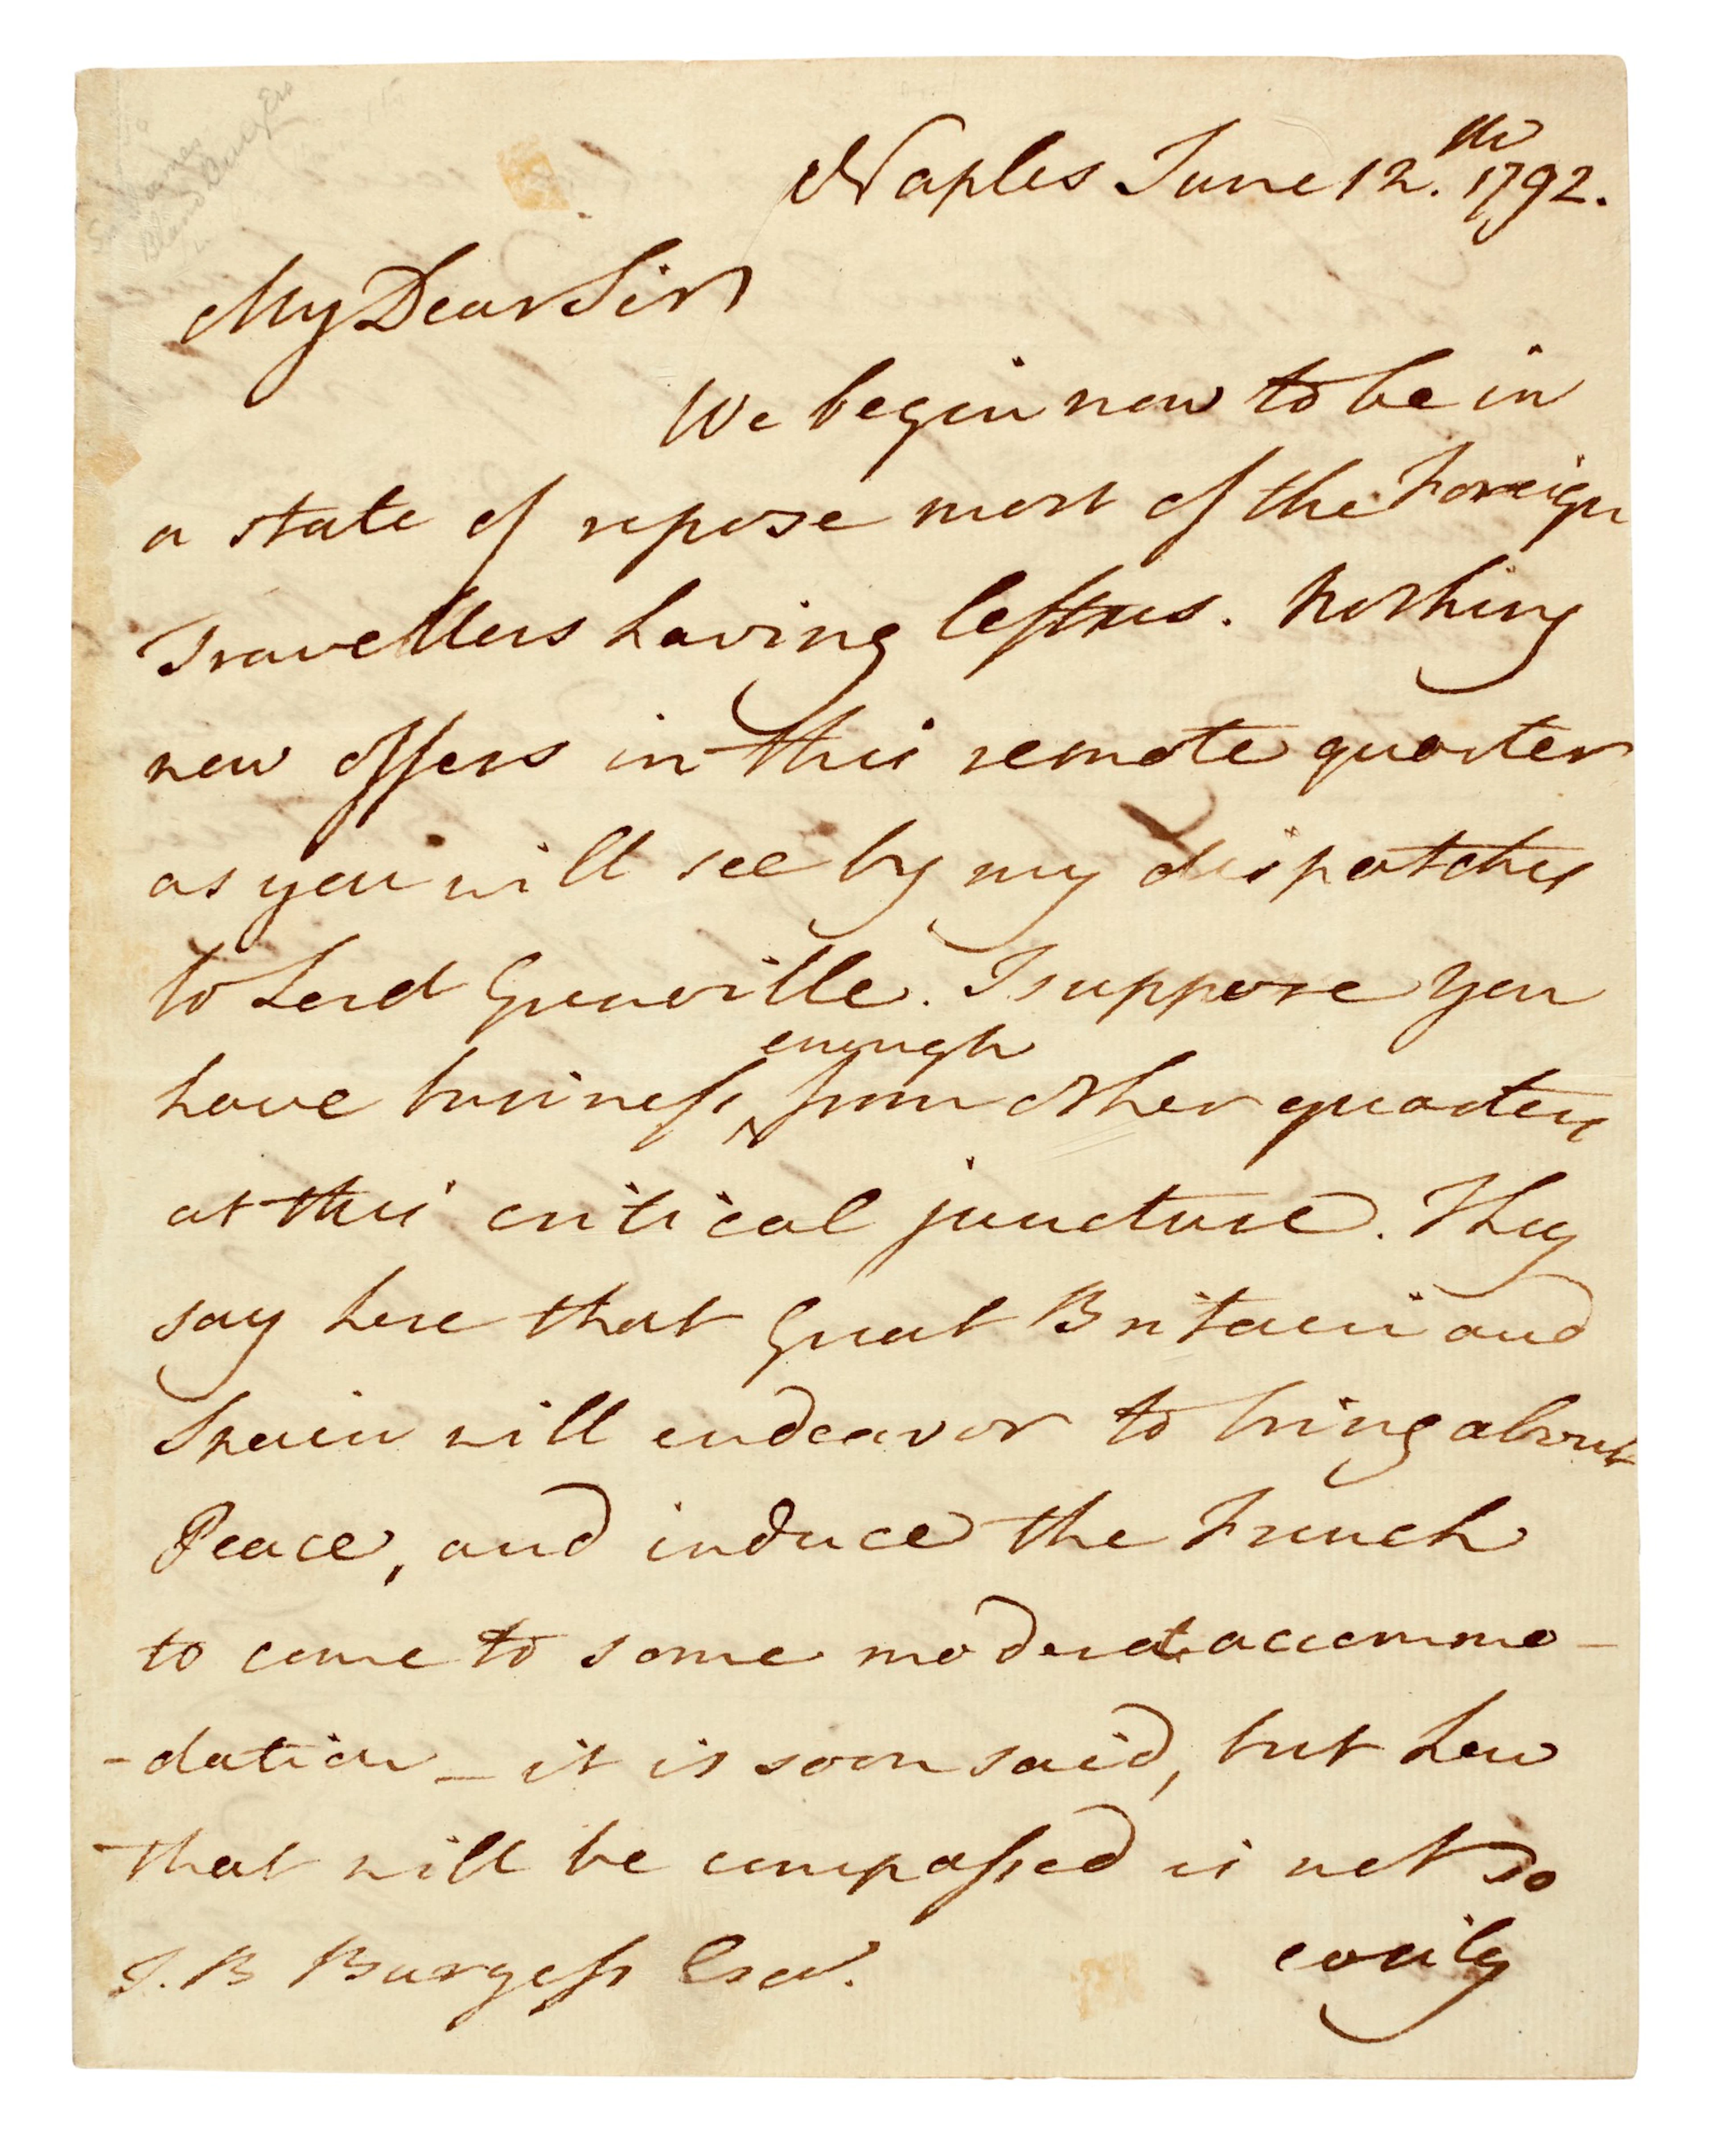 Sir James
Bland Burgess
Naples June 12.th 1792.
My Dear Sir
We begin now to be in
a state of repose most of the Foreign
Travellers having left us. Nothing
new offers in this remote quarter
as you will see by my dispatches
to Lord Grenville. I suppose you
enough
have business from other quarters
at this critical juncture. They
say here that Great Britain and
Spain will endeavor to bring about
Peace, and induce the French
to come to some moderate accommo-
-dation - it is soon said, but how
that will be compassed is not so
easily
J. B Burgess Esqr.